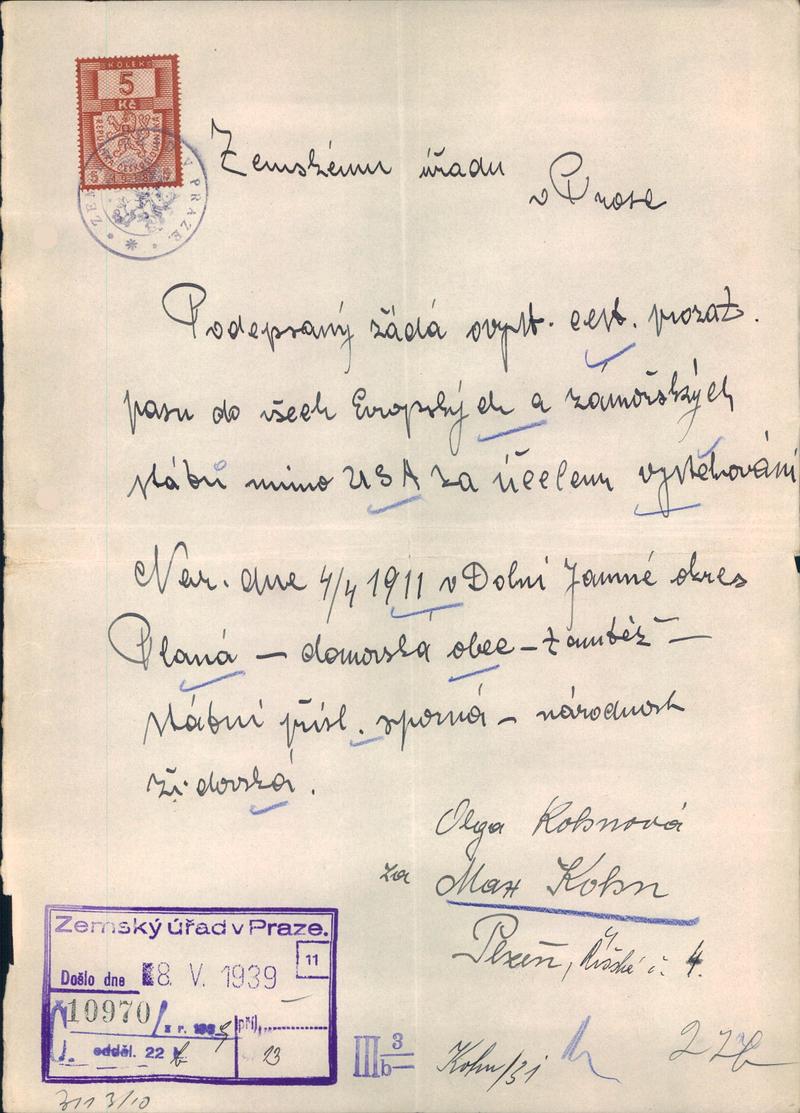 KOLEK
5
Kč
REPUBLIKA ČESKOSLOVENSKÁ
5 5
V PRAZE
Zemskému úřadu
v Praze
Podepsaný žádá o vyst. cest. prozat.
pasu do všech Evropských a zámořských
států mimo USA za účelem vystěhování
Nar. dne 4/4 1911 v Dolní Jamné okres
Planá – domovská obec – tamtéž –
státní přísl. sporná – národnost
židovská.
Olga Kohnová
za Max Kohn
Plzeň, č. 4.
Zemský úřad v Praze.
11
Došlo dne 8. V. 1939
Č 10970/ z r. 1939 příl.
odděl. 22 b 13
III 3
b–
Kohn/31
22b